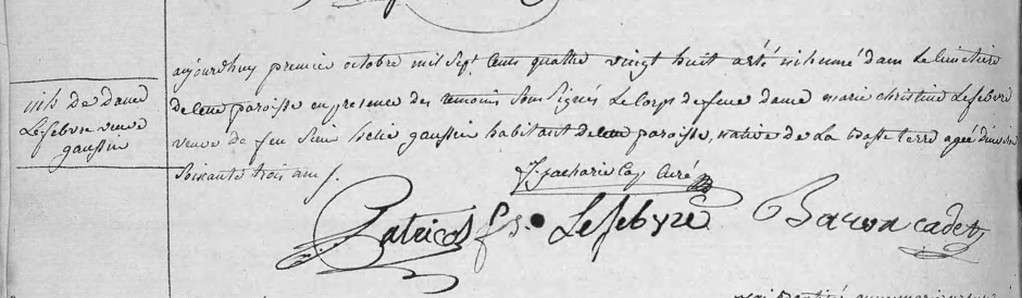 aujourdhuy premier octobre mil Sept Cents quatre vingt huit a été inhumé dans Le Cimetiere
inh de dame
Lefebvre veuve
gaussin
de cette paroisse en presence des temoins Sous Signés Le Corps de feue dame marie christine Lefebvre
veuve de feu Sieur helie gaussin habitant de cette paroisse, native de La basse terre agée d'environ
Soixante trois ans /.
f. zacharie Cap Curé
Patricot fs. Lefebvre Baron cadet